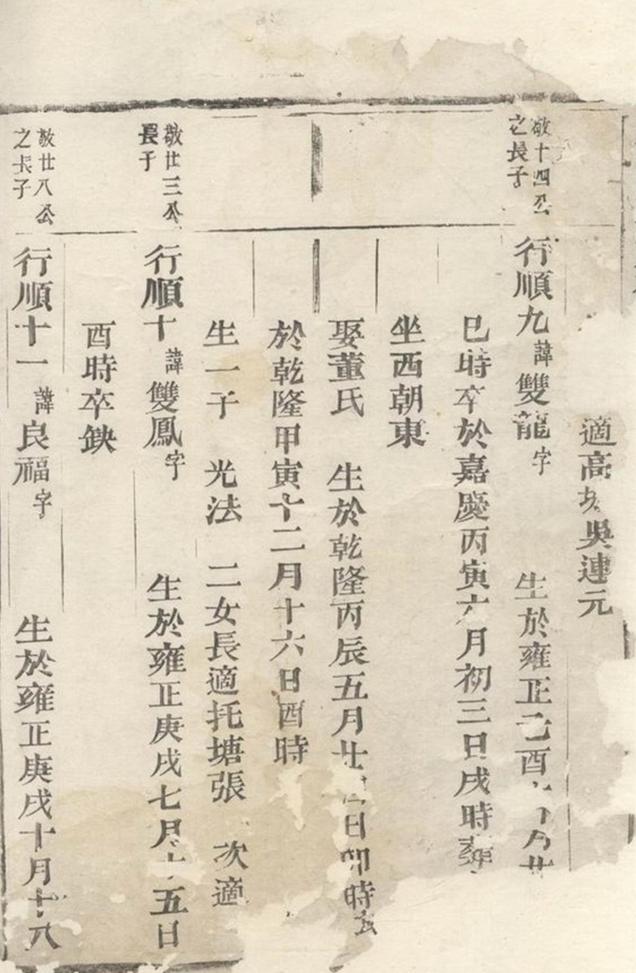 適高吳連元
敬十四公
之長子
行順九 諱 雙龍 字 生於雍正己酉 月廿
巳時卒於嘉慶丙寅六月初三日戌時
坐西朝東
娶董氏 生於乾隆丙辰五月廿 日卯時
於乾隆甲寅十二月十六日酉時
生一子 光法 二女長適托塘張 次適
敬廿三公
長子
行順十 諱 雙鳳 字 生於雍正庚戌七月十五日
酉時卒缺
敬廿八公
之長子
行順十一 諱 良福 字 生於雍正庚戌十月十八